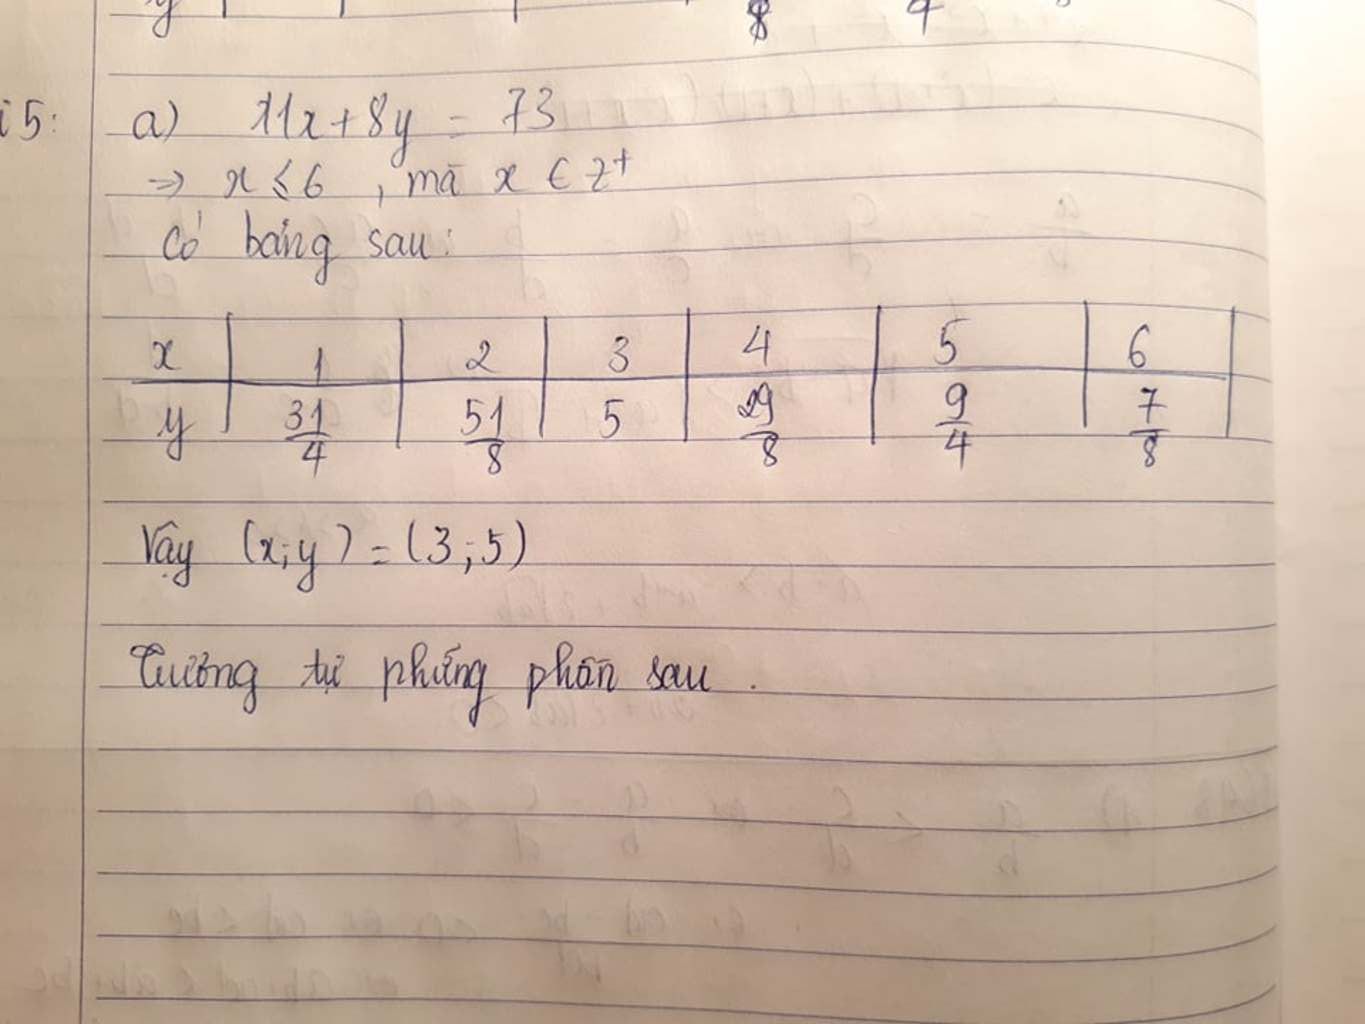 y 8 4
i 5: a) 11x + 8y = 73
=> x ≤ 6 , mà x ∈ Z⁺
Có bảng sau:
x 1 2 3 4 5 6
y 31/4 51/8 5 29/8 9/4 7/8
Vậy (x; y) = (3; 5)
Tương tự những phần sau .